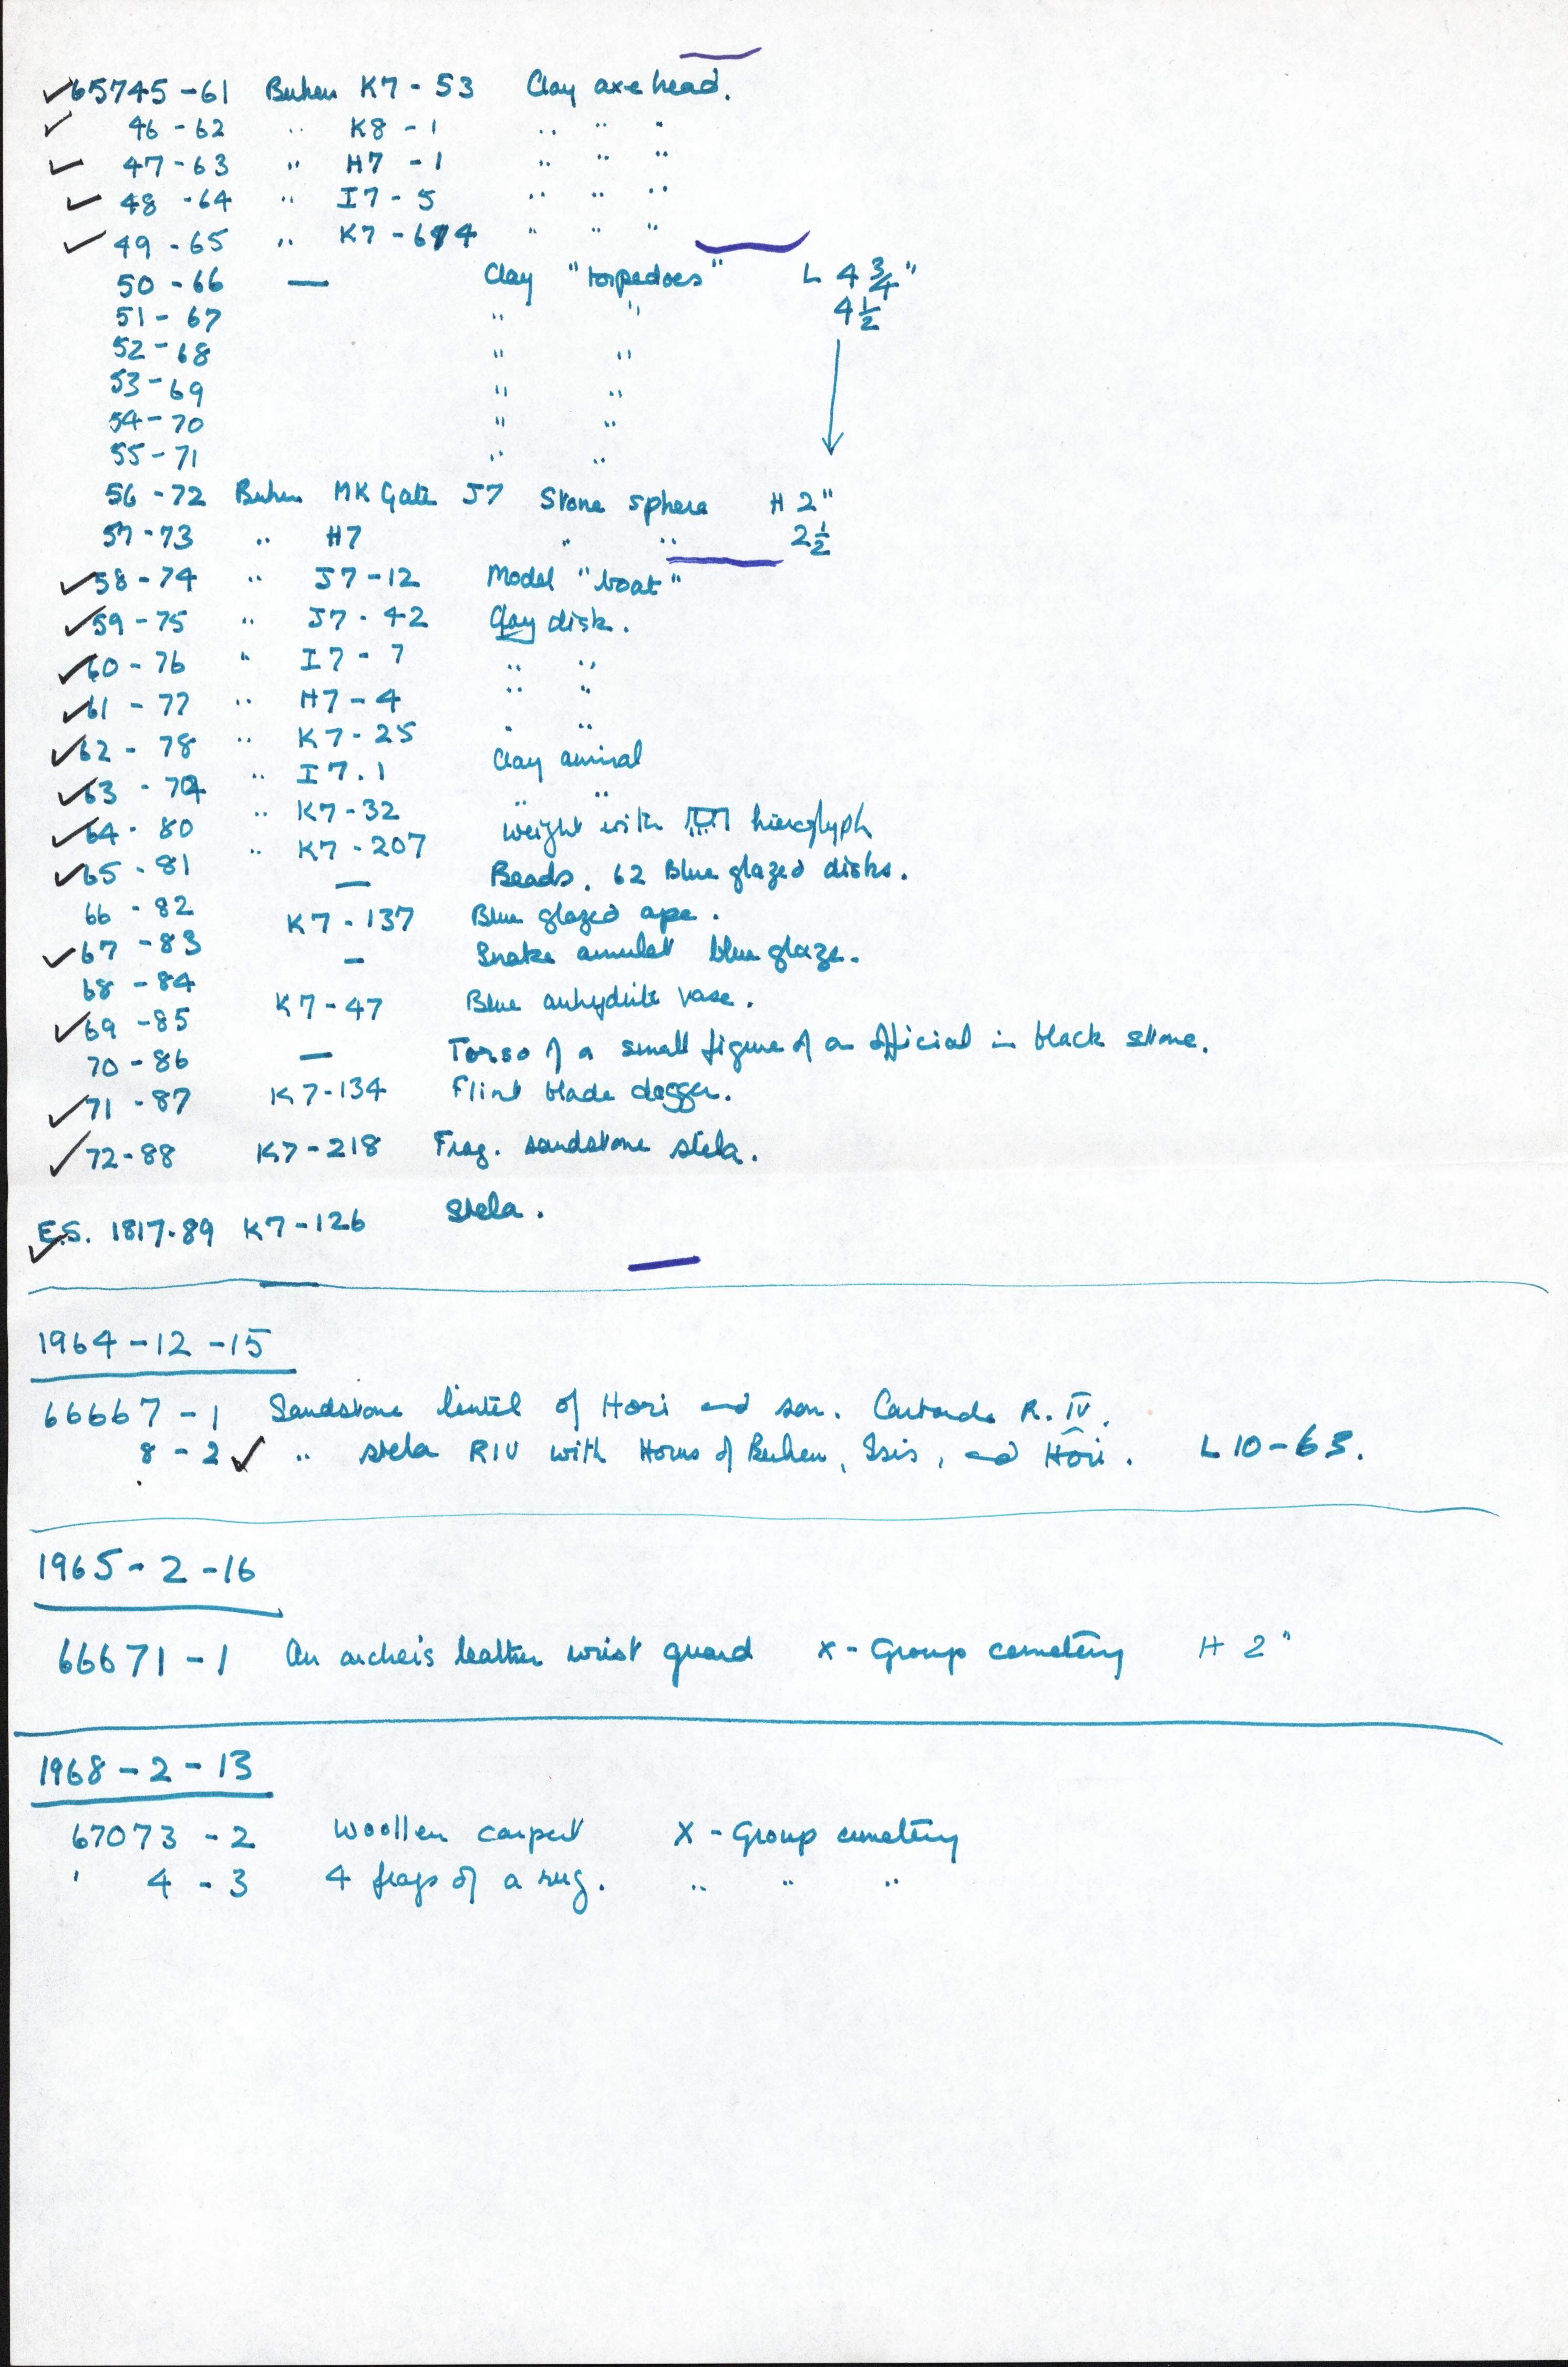 ✓65745-61 Buhen K7-53 Clay axe head.
✓ 46-62 " K8-1 " " "
✓ 47-63 " H7-1 " " "
✓ 48-64 " I7-5 " " "
✓ 49-65 " K7- " " "
50-66 — Clay "torpedoes" L 4 3/4"
51-67 " " 4 1/2
52-68 " "
53-69 " "
54-70 " "
55-71 " "
56-72 Buhen MK Gate J7 Stone sphere H 2"
57-73 " H7 " " 2 1/2
✓58-74 " J7-12 Model "boat"
✓59-75 " J7-42 Clay disk.
✓60-76 " I7-7 " "
✓61-77 " H7-4 " "
✓62-78 " K7-25 " "
✓63-79 " I7.1 Clay animal
✓64-80 " K7-32 " "
✓65-81 " K7-207 Weight with hieroglyph
66-82 — Beads. 62 Blue glazed disks.
✓67-83 K7-137 Blue glazed ape.
68-84 — Snake amulet blue glaze.
✓69-85 K7-47 Blue anhydrite vase.
70-86 — Torso of a small figure of an official in black stone.
✓71-87 K7-134 Flint blade dagger.
✓72-88 K7-218 Frag. sandstone stela.
✓E.S. 1817-89 K7-126 Stela.
1964-12-15
66667-1 Sandstone lintel of Hori and son. Cartouche R. IV.
8-2 ✓ " stela RIV with Horus of Buhen, Isis, and Hori. L 10-63.
1965-2-16
66671-1 An archer's leather wrist guard X-Group cemetery H 2"
1968-2-13
67073-2 Woollen carpet X-Group cemetery
' 4-3 4 frags of a rug. " " "